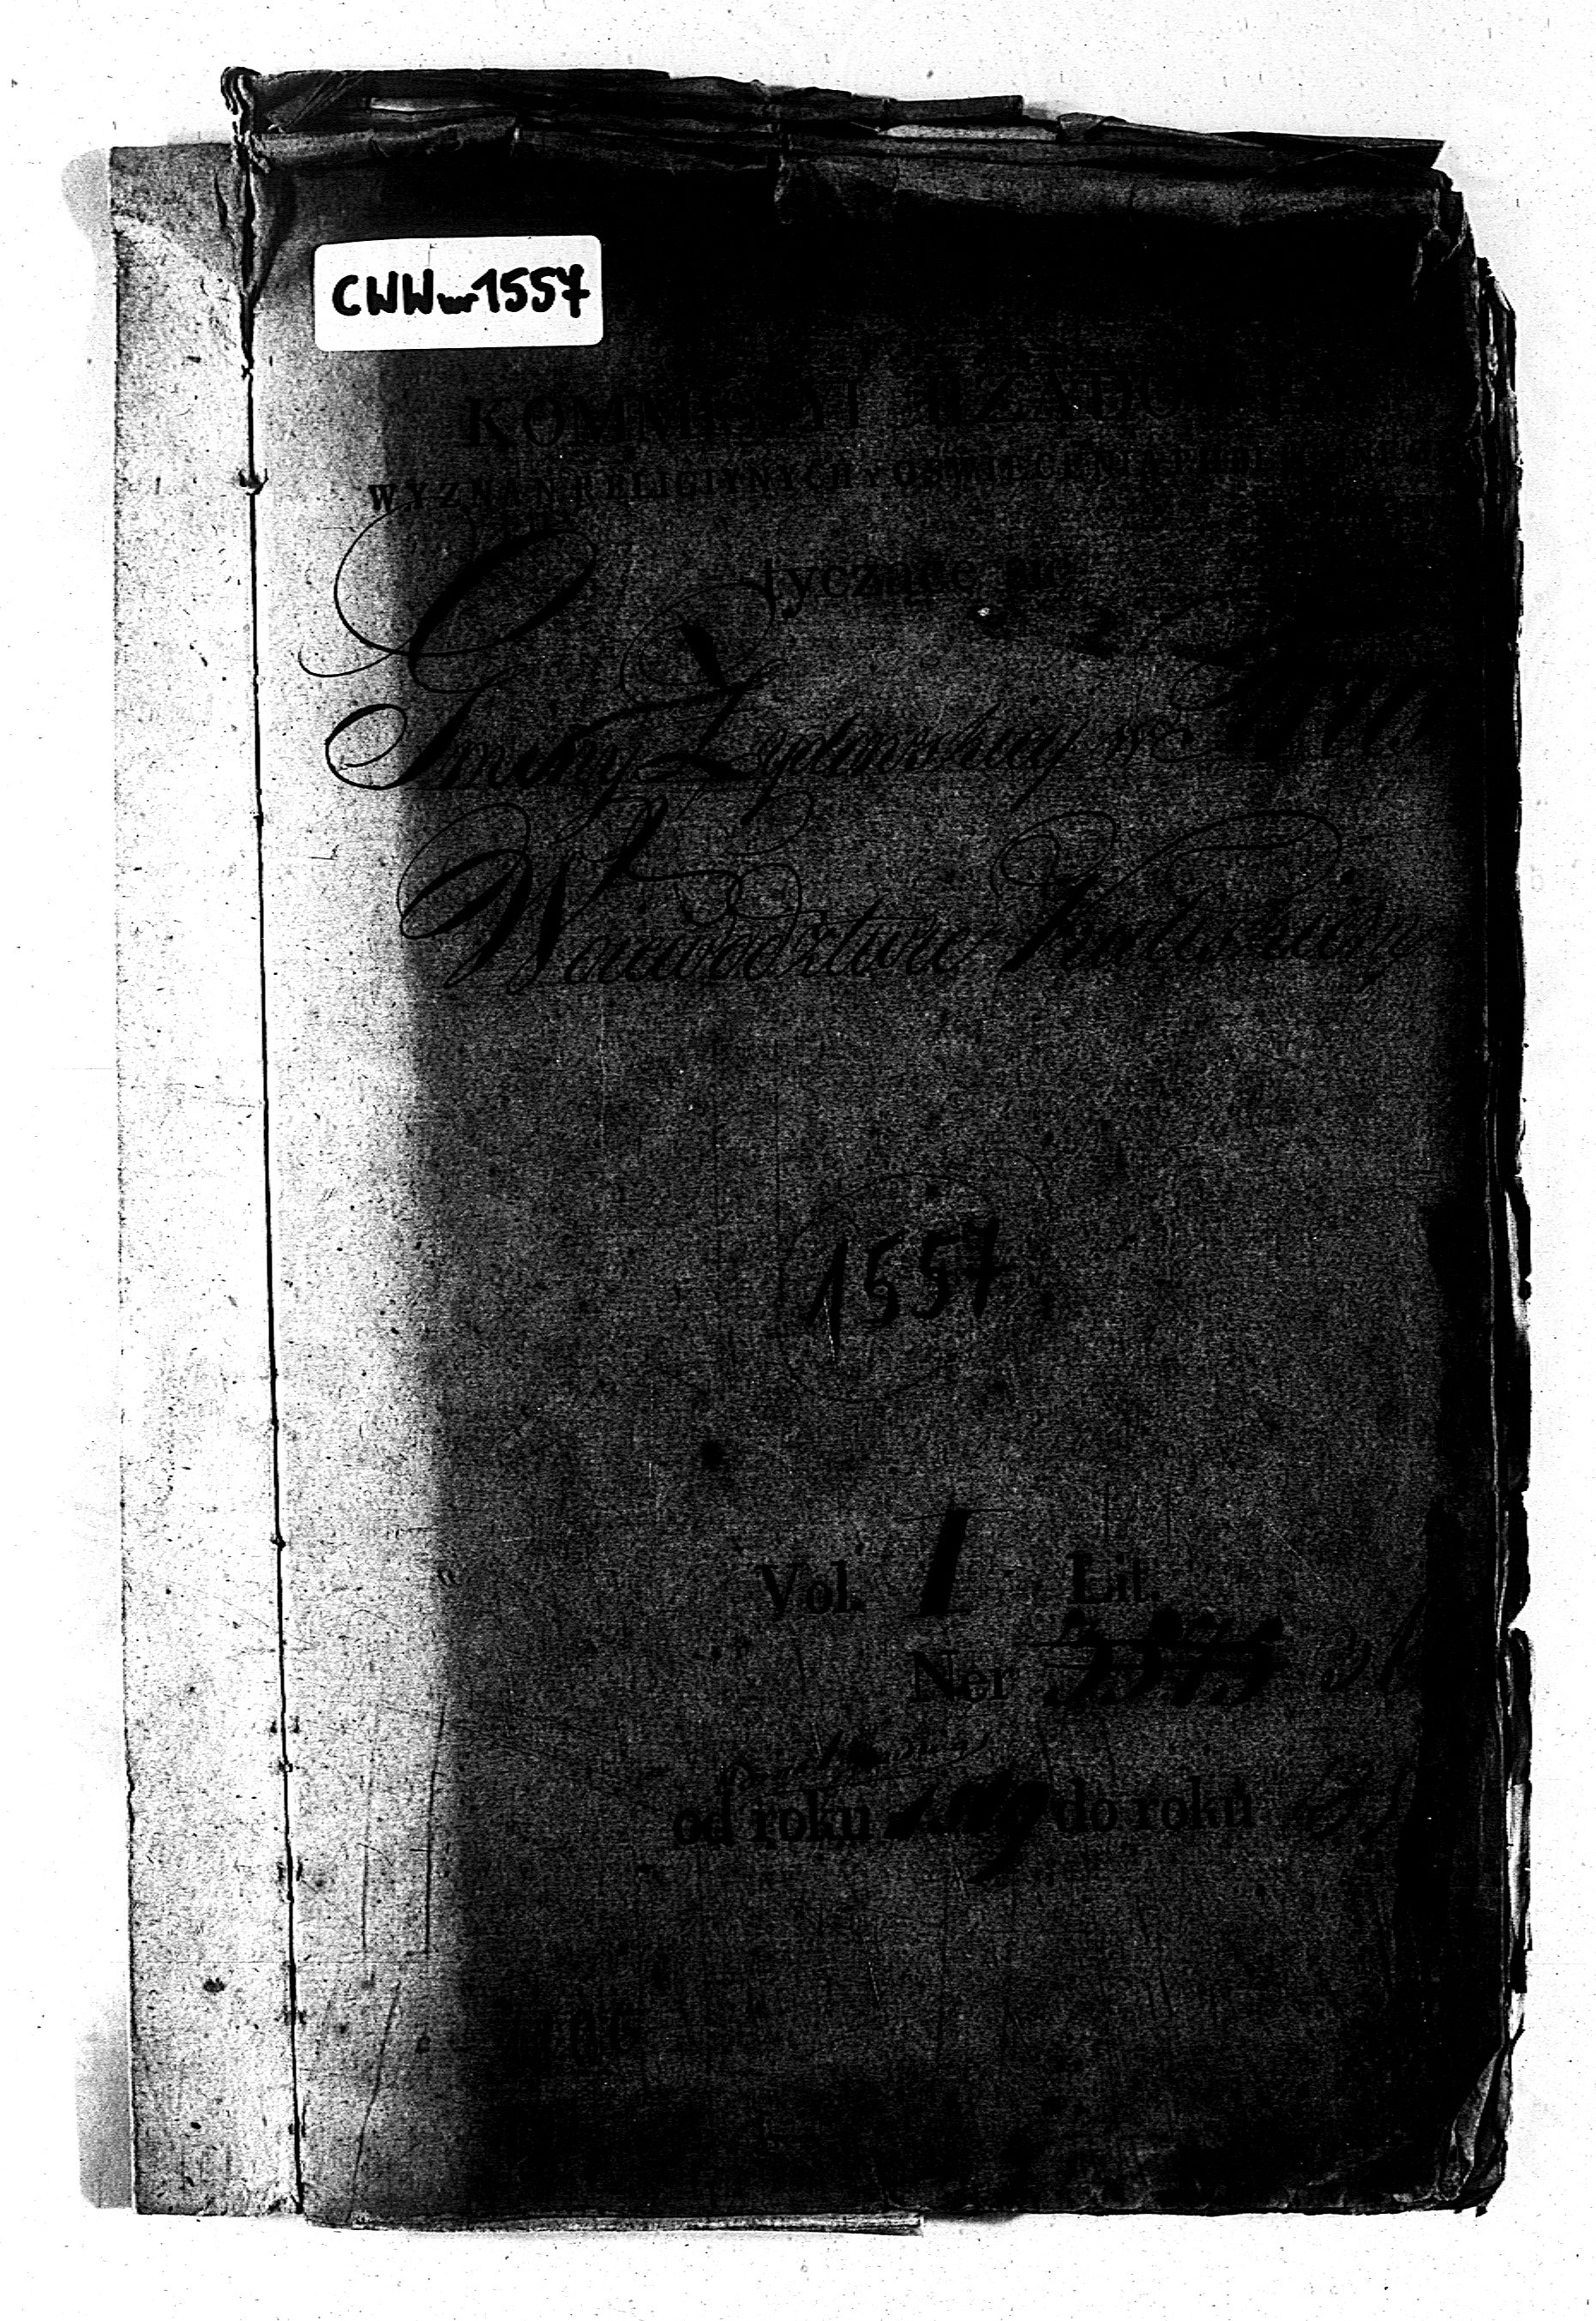 CWW nr 1557
KOMMISSYI RZĄDOWEJ
WYZNAŃ RELIGIJNYCH y OŚWIECENIA PUBLICZNEGO
tyczące się
Gminy Żydowskiey w
Woiewodztwie Kaliskiém
1557
Vol. I Lit.
Ner
od roku 1819 do roku